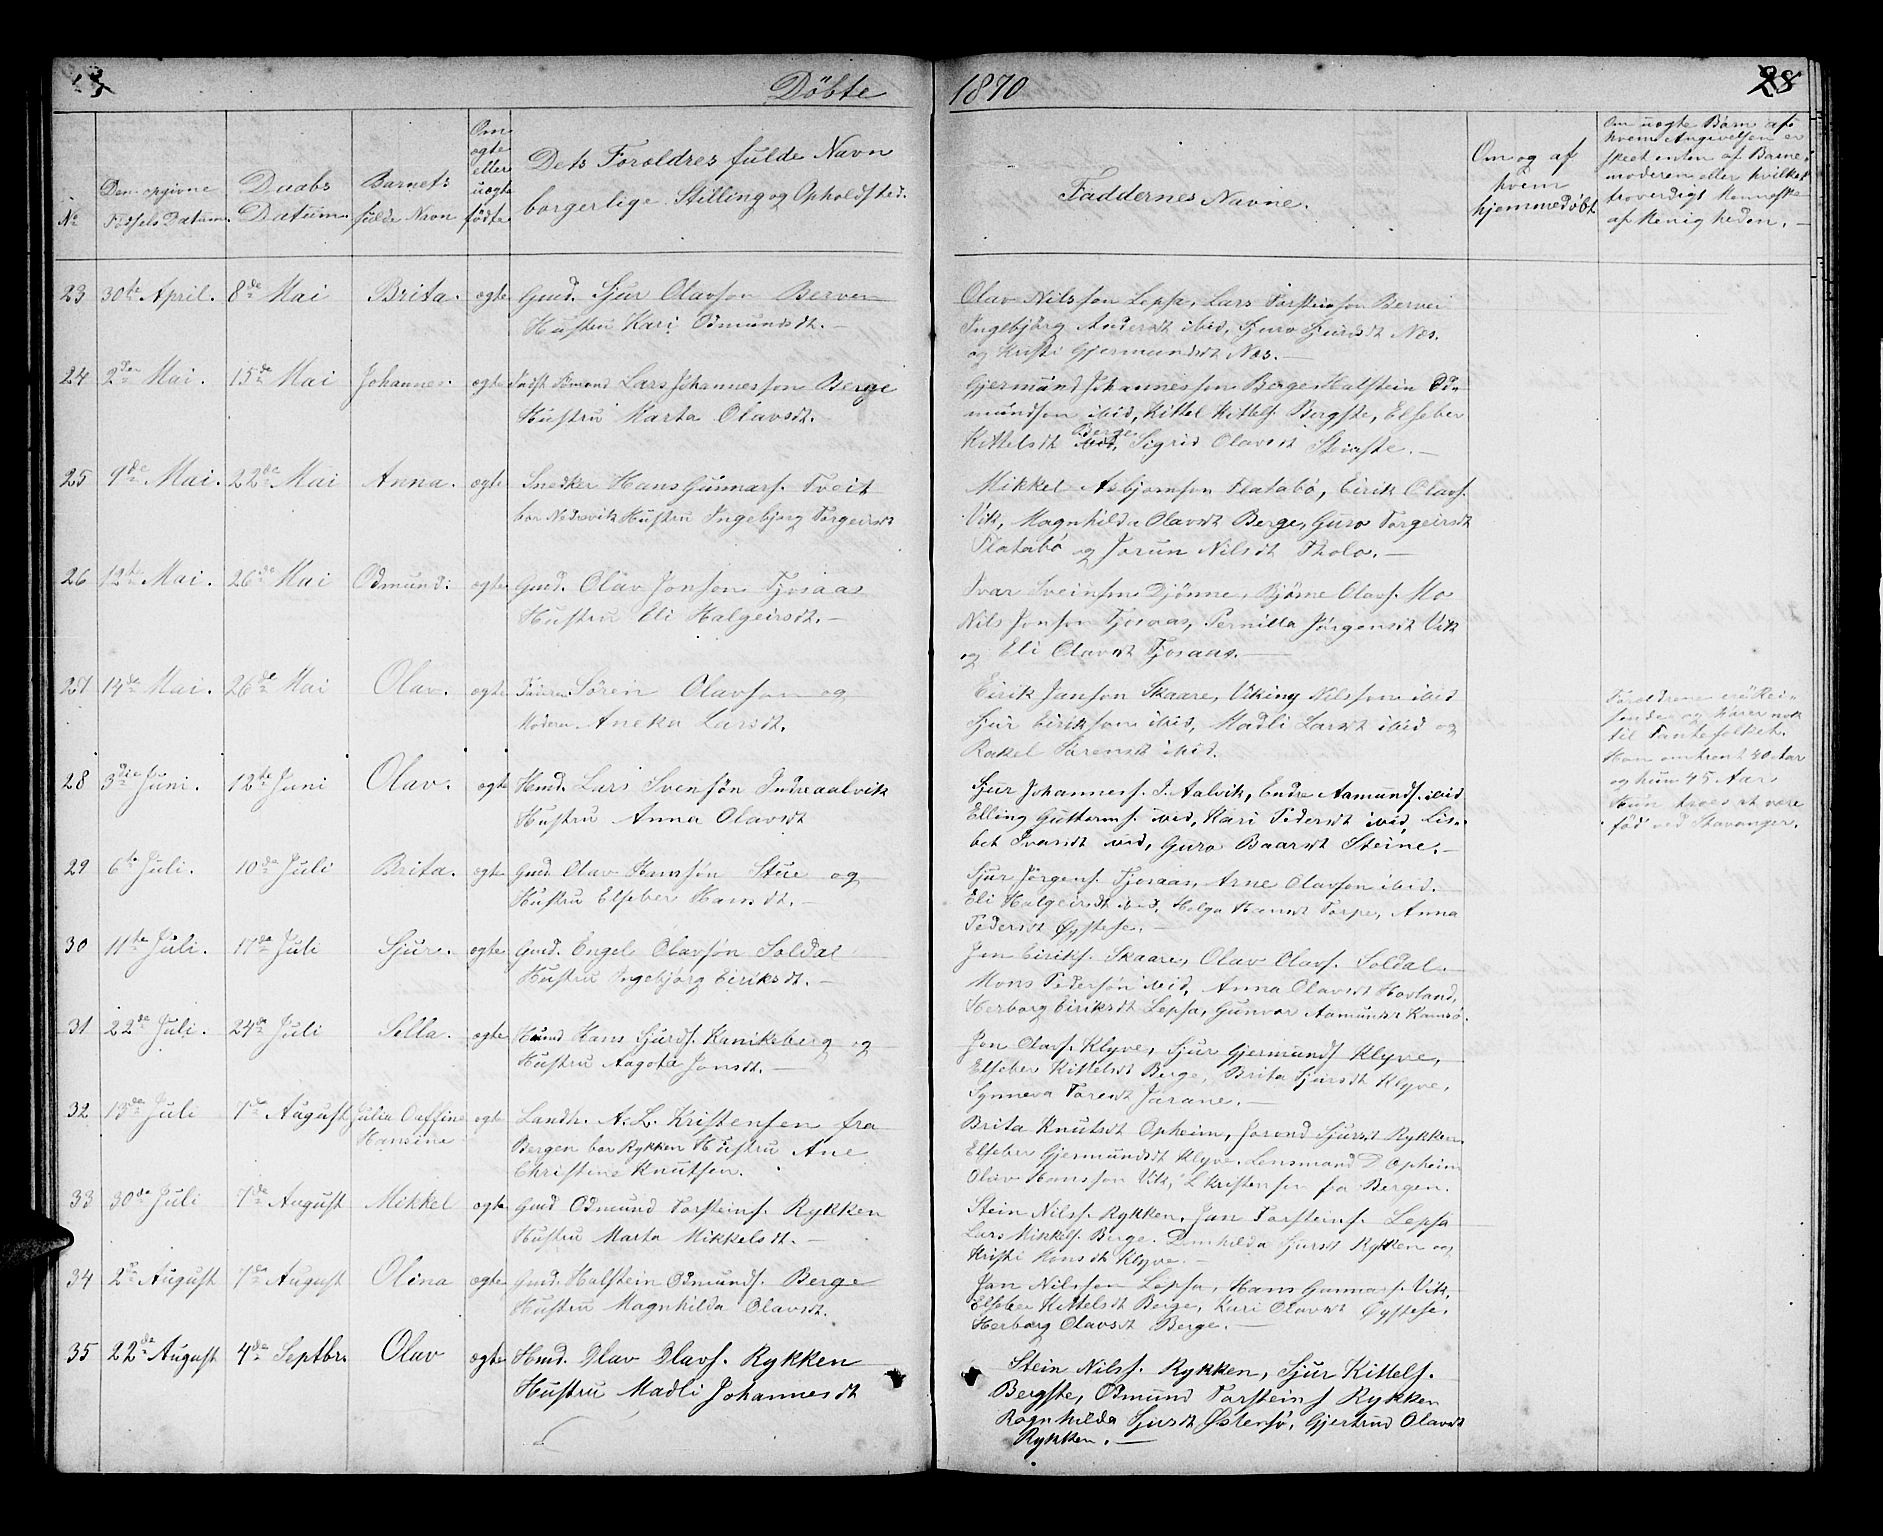 Döbte
1870
28
No
Den opgivne Fødsels Datum.
Daabs Datum.
Barnets fulde Navn
Om ægte eller uægte fødte
Dets Forældres fulde Navn
borgerlige Stilling og Opholdsted.
Faddernes Navne.
Om og af hvem hjemmedöbt
Om uægte Børn af hvem Angivelsen er skeet enten af Barnemoderen eller hvilket troverdigt
23 30te April. 8de Mai Brita. ægte Gmd. Sjur Olavson Berven
Hustru Kari Odmundsdt. —
Olav Nilsson Lepsø, Lars Torsteinson Berven
Ingebjörg Andersdt ibid, Guro Sjursdt Næs.
og Kristi Gjermundsdt Næs. —
24 2den Mai. 15de Mai Johannes. ægte Lars Johannesson Berge
Hustru Marta Olavsdt.
Gjermund Johannesson Berge, Halstein Od-
mundson ibid, Kittel Kittels. Bergste, Elseber
Kittelsdt Berge, Sigrid Olavsdt Steinste. —
25 9de Mai. 22de Mai Anna. ægte Snedker Hans Gunnars. Tveit
bor Nedrevik Hustru Ingebjørg Torgeirsdt
Mikkel Asbjørnson Flatabö, Eirik Olavs.
Vik, Magnhilda Olavsdt Berge, Guro Torgeirsdt
Flatabö og Jorun Nilsdt Tholo. —
26 12te Mai. 26de Mai Odmund. ægte Gmd. Olav Jonson Fjosaas
Hustru Eli Halgeirsdt. —
Ivar Sveinson Djönne, Bjørne Olavs. Mo
Nils Jonson Fjosaas, Pernilla Jörgensdt Vik
og Eli Olavsdt Fjosaas. —
27 14de Mai. 26de Mai Olav. ægte Faderen Sören Olavson og
Moderen Aneka Larsdt.
Eirik Janson Skaare, Viking Nilsson ibid
Sjur Eirikson ibid, Madli Larsdt ibid og
Rakel Sörensdt ibid.
Forældrene ere Rei-
sende og hører nok
til Tantefolket.
Han omtrent 40 Aar
og hun 45 Aar.
Hun troes at være
fød ved Stavanger.
28 3die Juni. 12te Juni Olav. ægte Hmd. Lars Svensön Indreaalvik
Hustru Anna Olavsdt
Sjur Johanness. I. Aalvik, Endre Aamunds. ibid
Elling Guttorms. ibid, Kari Pedersdt ibid, Lis-
bet Ivarsdt ibid, Guro Baarsdt Steine. —
29 6te Juli. 10de Juli Brita. ægte Gmd. Olav Hansön Stue og
Hustru Elseber Hansdt. —
Sjur Jörgens. Fjosaas, Arne Olavson ibid.
Eli Halgeirsdt ibid, Helga Hansdt Torpe, Anna
Pedersdt Öystese. —
30 11te Juli. 17de Juli Sjur. ægte Gmd. Engel Olavsön Soldal
Hustru Ingebjörg Eiriksdt. —
Jon Eiriks. Skaare, Olav Olavs. Soldal.
Mons Pedersön ibid, Anna Olavsdt Hovland,
Herborg Eiriksdt Lepsø, Gunvor Aamundsdt
31 22de Juli. 24de Juli Sella. ægte Hans Sjurds. Kanikeberg og
Hustru Aagota Jonsdt. —
Jon Olavs. Klyve, Sjur Gjermunds Klyve,
Elseber Kittelsdt Berge, Brita Sjursdt Klyve,
Synneva Toresdt
32 13de Juli 7de August Julia Hansine ægte Landh. A. L. Kristensen fra
Bergen bor Rykken Hustru Ane
Christine Knutsen.
Brita Knutsdt Opheim, Jorond Sjursdt Rykken
Elseber Gjermundsdt Klyve, Lensmand D Opheim
Olav Hansson Vik, L Kristensen fra Bergen.
33 30de Juli 7de August Mikkel ægte Gmd Odmund Torsteins. Rykken
Hustru Marta Mikkelsdt. —
Stein Nilss. Rykken, Jan Torsteins. Lepsø
Lars Mikkels. Berge. Sjursdt Rykken og
Kristi Hansdt Klyve. —
34 2de August 7de August Olina ægte Gmd. Halstein Odmunds. Berge
Hustru Magnhilda Olavsdt.
Jan Nilsson Lepsø, Hans Gunnars. Vik,
Elseber Kittelsdt Berge, Kari Olavsdt Öystese,
Herborg Olavsdt Berge. —
35 22de August 4de Septbr. Olav ægte Hmd. Olav Olavs. Rykken
Hustru Madli Johannesdt
Stein Nilss. Rykken, Sjur Kittels.
Bergste, Odmund Torsteins Rykken
Ragnhilda Sjursdt Östensö, Gjertrud Olavsdt
Rykken. —